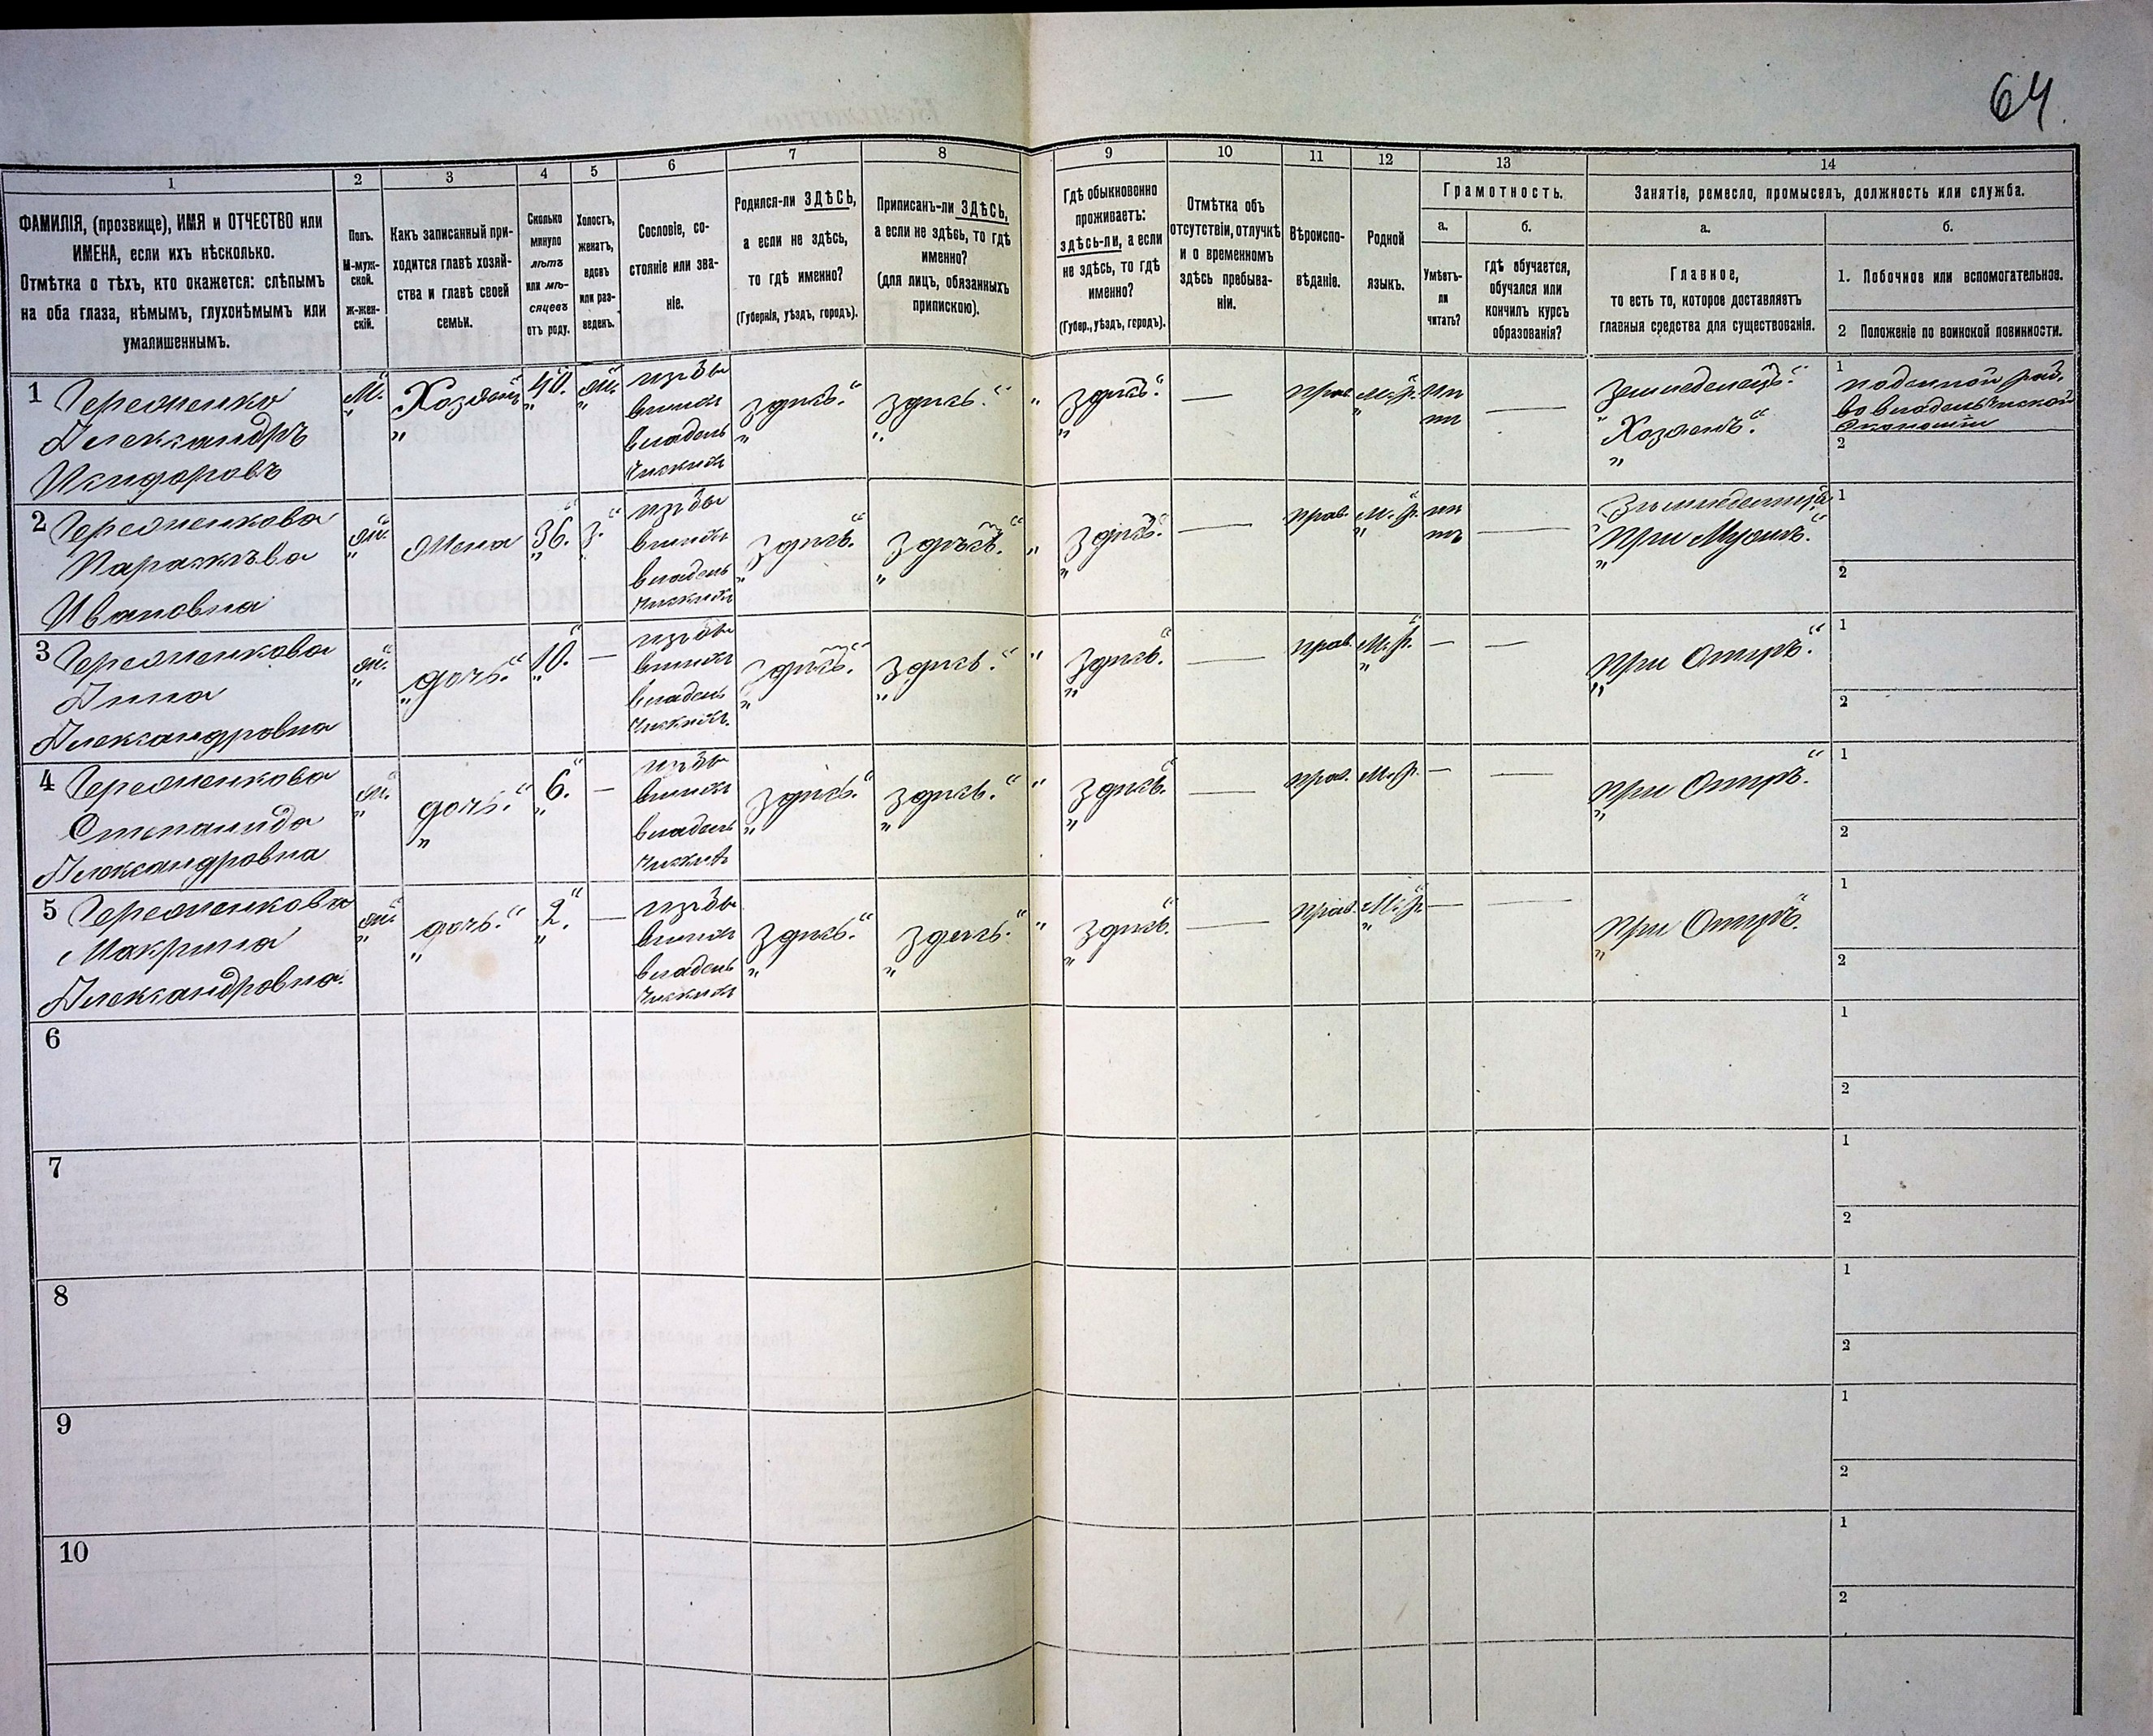 64.
1
2
3
4
5
6
7
8
9
10
11
12
13
14
ФАМИЛІЯ, (прозвище), ИМЯ и ОТЧЕСТВО или
ИМЕНА, если ихъ нѣсколько.
Отмѣтка о тѣхъ, кто окажется: слѣпымъ
на оба глаза, нѣмымъ, глухонѣмымъ или
умалишеннымъ.
Полъ.
М-муж-
ской.
ж-жен-
скій.
Какъ записанный при-
ходится главѣ хозяй-
ства и главѣ своей
семьи.
Сколько
минуло
лѣтъ
или мѣ-
сяцевъ
отъ роду.
Холостъ,
женатъ,
вдовъ
или раз-
веденъ.
Сословіе, со-
стояніе или зва-
ніе.
Родился-ли ЗДѢСЬ,
а если не здѣсь,
то гдѣ именно?
(Губернія, уѣздъ, городъ).
Приписанъ-ли ЗДѢСЬ,
а если не здѣсь, то гдѣ
именно?
(для лицъ, обязанныхъ
припискою).
Гдѣ обыкновенно
проживаетъ:
здѣсь-ли, а если
не здѣсь, то гдѣ
именно?
(Губер., уѣздъ, городъ).
Отмѣтка объ
отсутствіи, отлучкѣ
и о временномъ
здѣсь пребыва-
ніи.
Вѣроиспо-
вѣданіе.
Родной
языкъ.
Грамотность.
а.
Умѣетъ-
ли
читать?
б.
гдѣ обучается,
обучался или
кончилъ курсъ
образованія?
Занятіе, ремесло, промыселъ, должность или служба.
а.
Главное,
то есть то, которое доставляетъ
главныя средства для существованія.
б.
1. Побочное или вспомогательное.
2 Положеніе по воинской повинности.
1 Александръ
М. Хозяинъ 40. ж.
здѣсь. здѣсь. здѣсь. — прав. М. р. нѣтъ —
Земледелецъ.
Хозяинъ.
1 поденной раб.
во владельческой
экономіи
2
2 Ивановна
ж. Жена 36. З.
здѣсь. здѣсь. здѣсь. — прав. М. р. нѣтъ —
При Мужѣ.
1
2
3 Анна
Александровна
ж. дочь. 10. —
здѣсь. здѣсь. здѣсь. — прав. М. р. — —
При Отцѣ.
1
2
4 Степанида
Александровна
ж. дочь. 6. —
здѣсь. здѣсь. здѣсь. — прав. М. р. — —
При Отцѣ.
1
2
5 Макрина
Александровна.
ж. дочь. 2. —
здѣсь. здесь. здѣсь. — прав. М. р. — —
При Отцѣ.
1
2
6
1
2
7
1
2
8
1
2
9
1
2
10
1
2